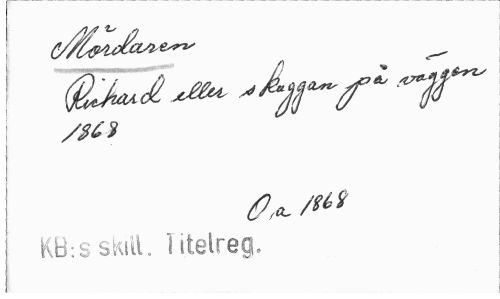 Mördaren
Richard eller skuggan på väggen
1868
O,a 1868
KB:s skill. Titelreg.